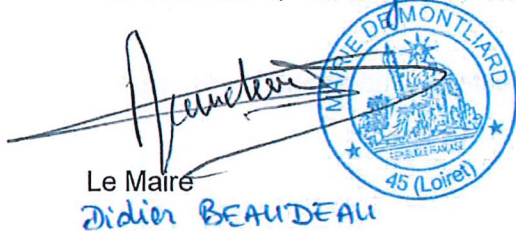 MAIRIE DE MONTLIARD
RÉPUBLIQUE FRANÇAISE
45 (Loiret)
Le Maire
Didier BEAUDEAU